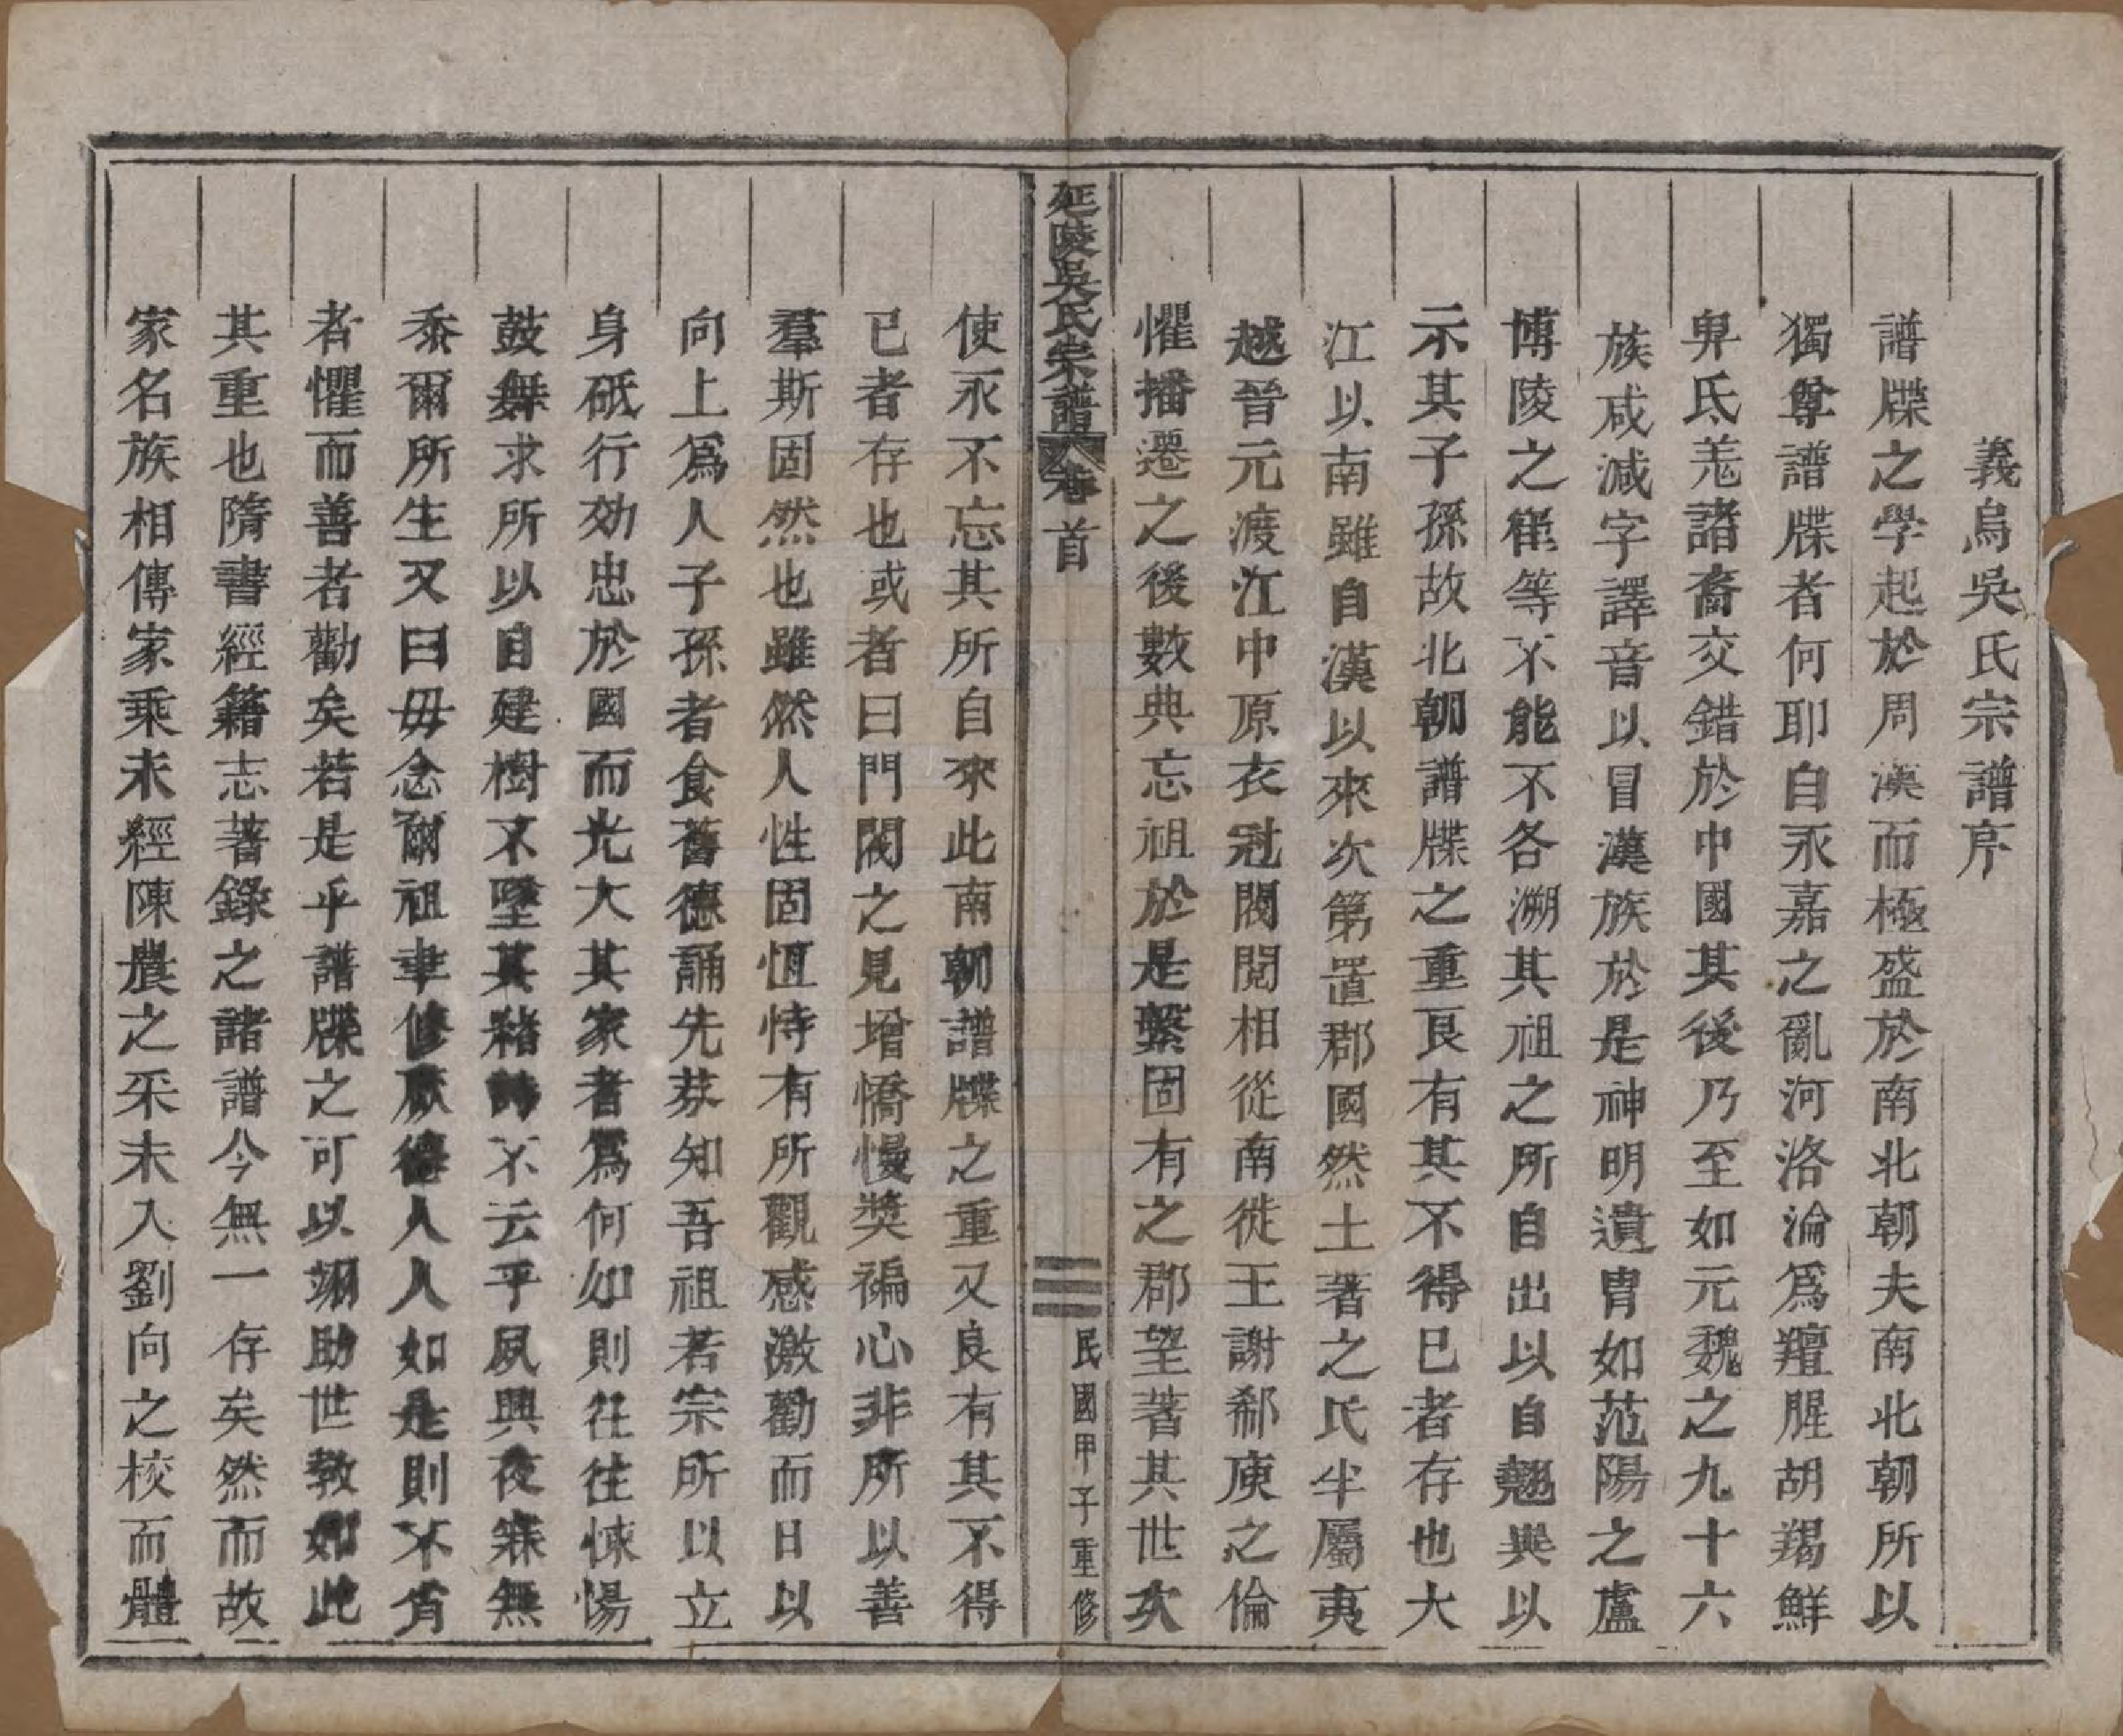 義烏吳氏宗譜序
譜牒之學起於周漢而極盛於南北朝夫南北朝所以
獨尊譜牒者何耶自永嘉之亂河洛淪爲羶腥胡羯鮮
卑氐羗諸裔交錯於中國其後乃至如元魏之九十六
族咸減字譯音以冒漢族於是神明遺胄如范陽之盧
博陵之崔等不能不各溯其祖之所自出以自翹異以
示其子孫故北朝譜牒之重良有其不得已者存也大
江以南雖自漢以來次第置郡國然土著之氏半屬夷
越晉元渡江中原衣冠閥閱相從南徙王謝郗庾之倫
懼播遷之後數典忘祖於是繫固有之郡望著其世次
延陵吳氏宗譜 卷首 三 民國甲子重修
使永不忘其所自來此南朝譜牒之重又良有其不得
已者存也或者曰門閥之見增憍慢獎褊心非所以善
羣斯固然也雖然人性固恆恃有所觀感激勸而日以
向上爲人子孫者食舊德誦先芬知吾祖若宗所以立
身砥行効忠於國而光大其家者爲何如則往往悚惕
鼓舞求所以自建樹不墜其緒詩不云乎夙興夜寐無
忝爾所生又曰毋念爾祖聿修厥德人人如是則不肖
者懼而善者勸矣若是乎譜牒之可以翊助世教如此
其重也隋書經籍志著錄之諸譜今無一存矣然而故
家名族相傳家乘未經陳農之采未入劉向之校而體